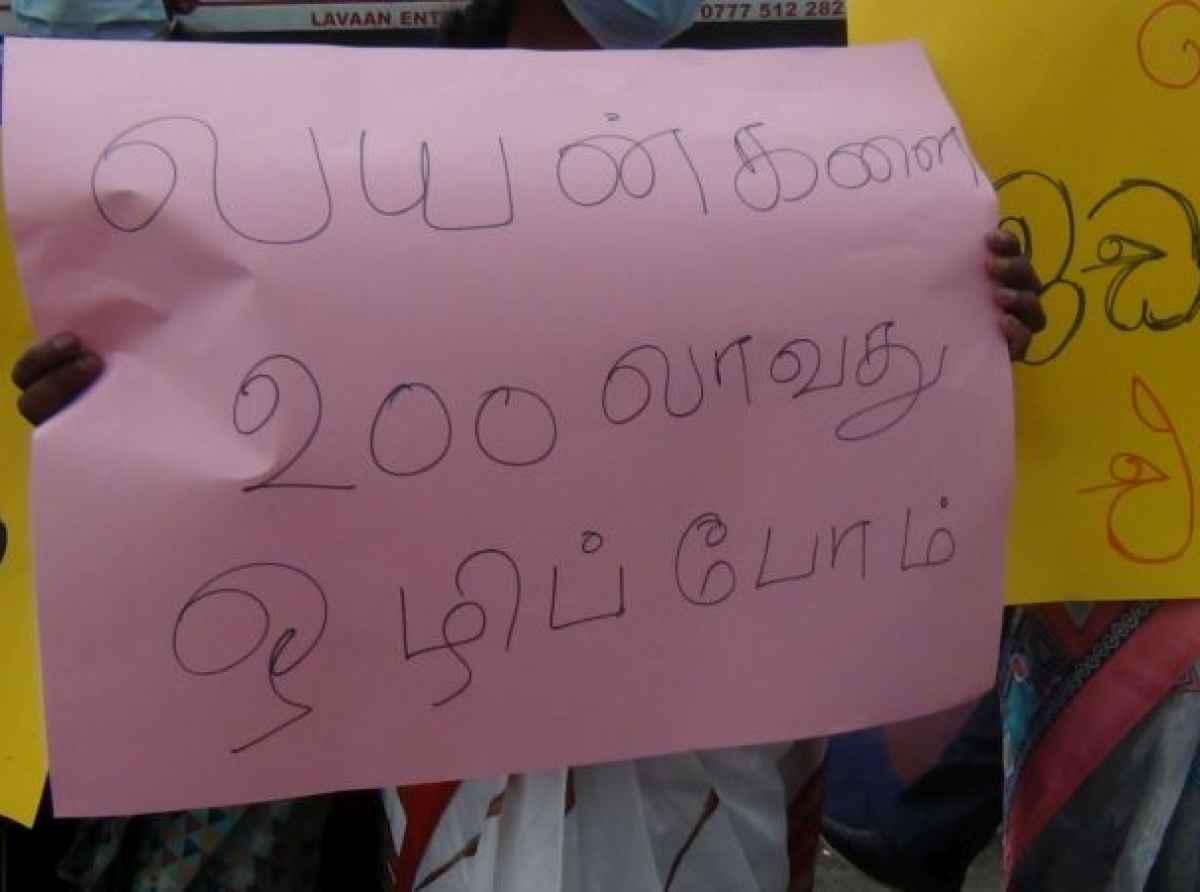 LAVAAN ENT 0777 512 282
லயன்களை
200 லாவது
ஒழிப்போம்